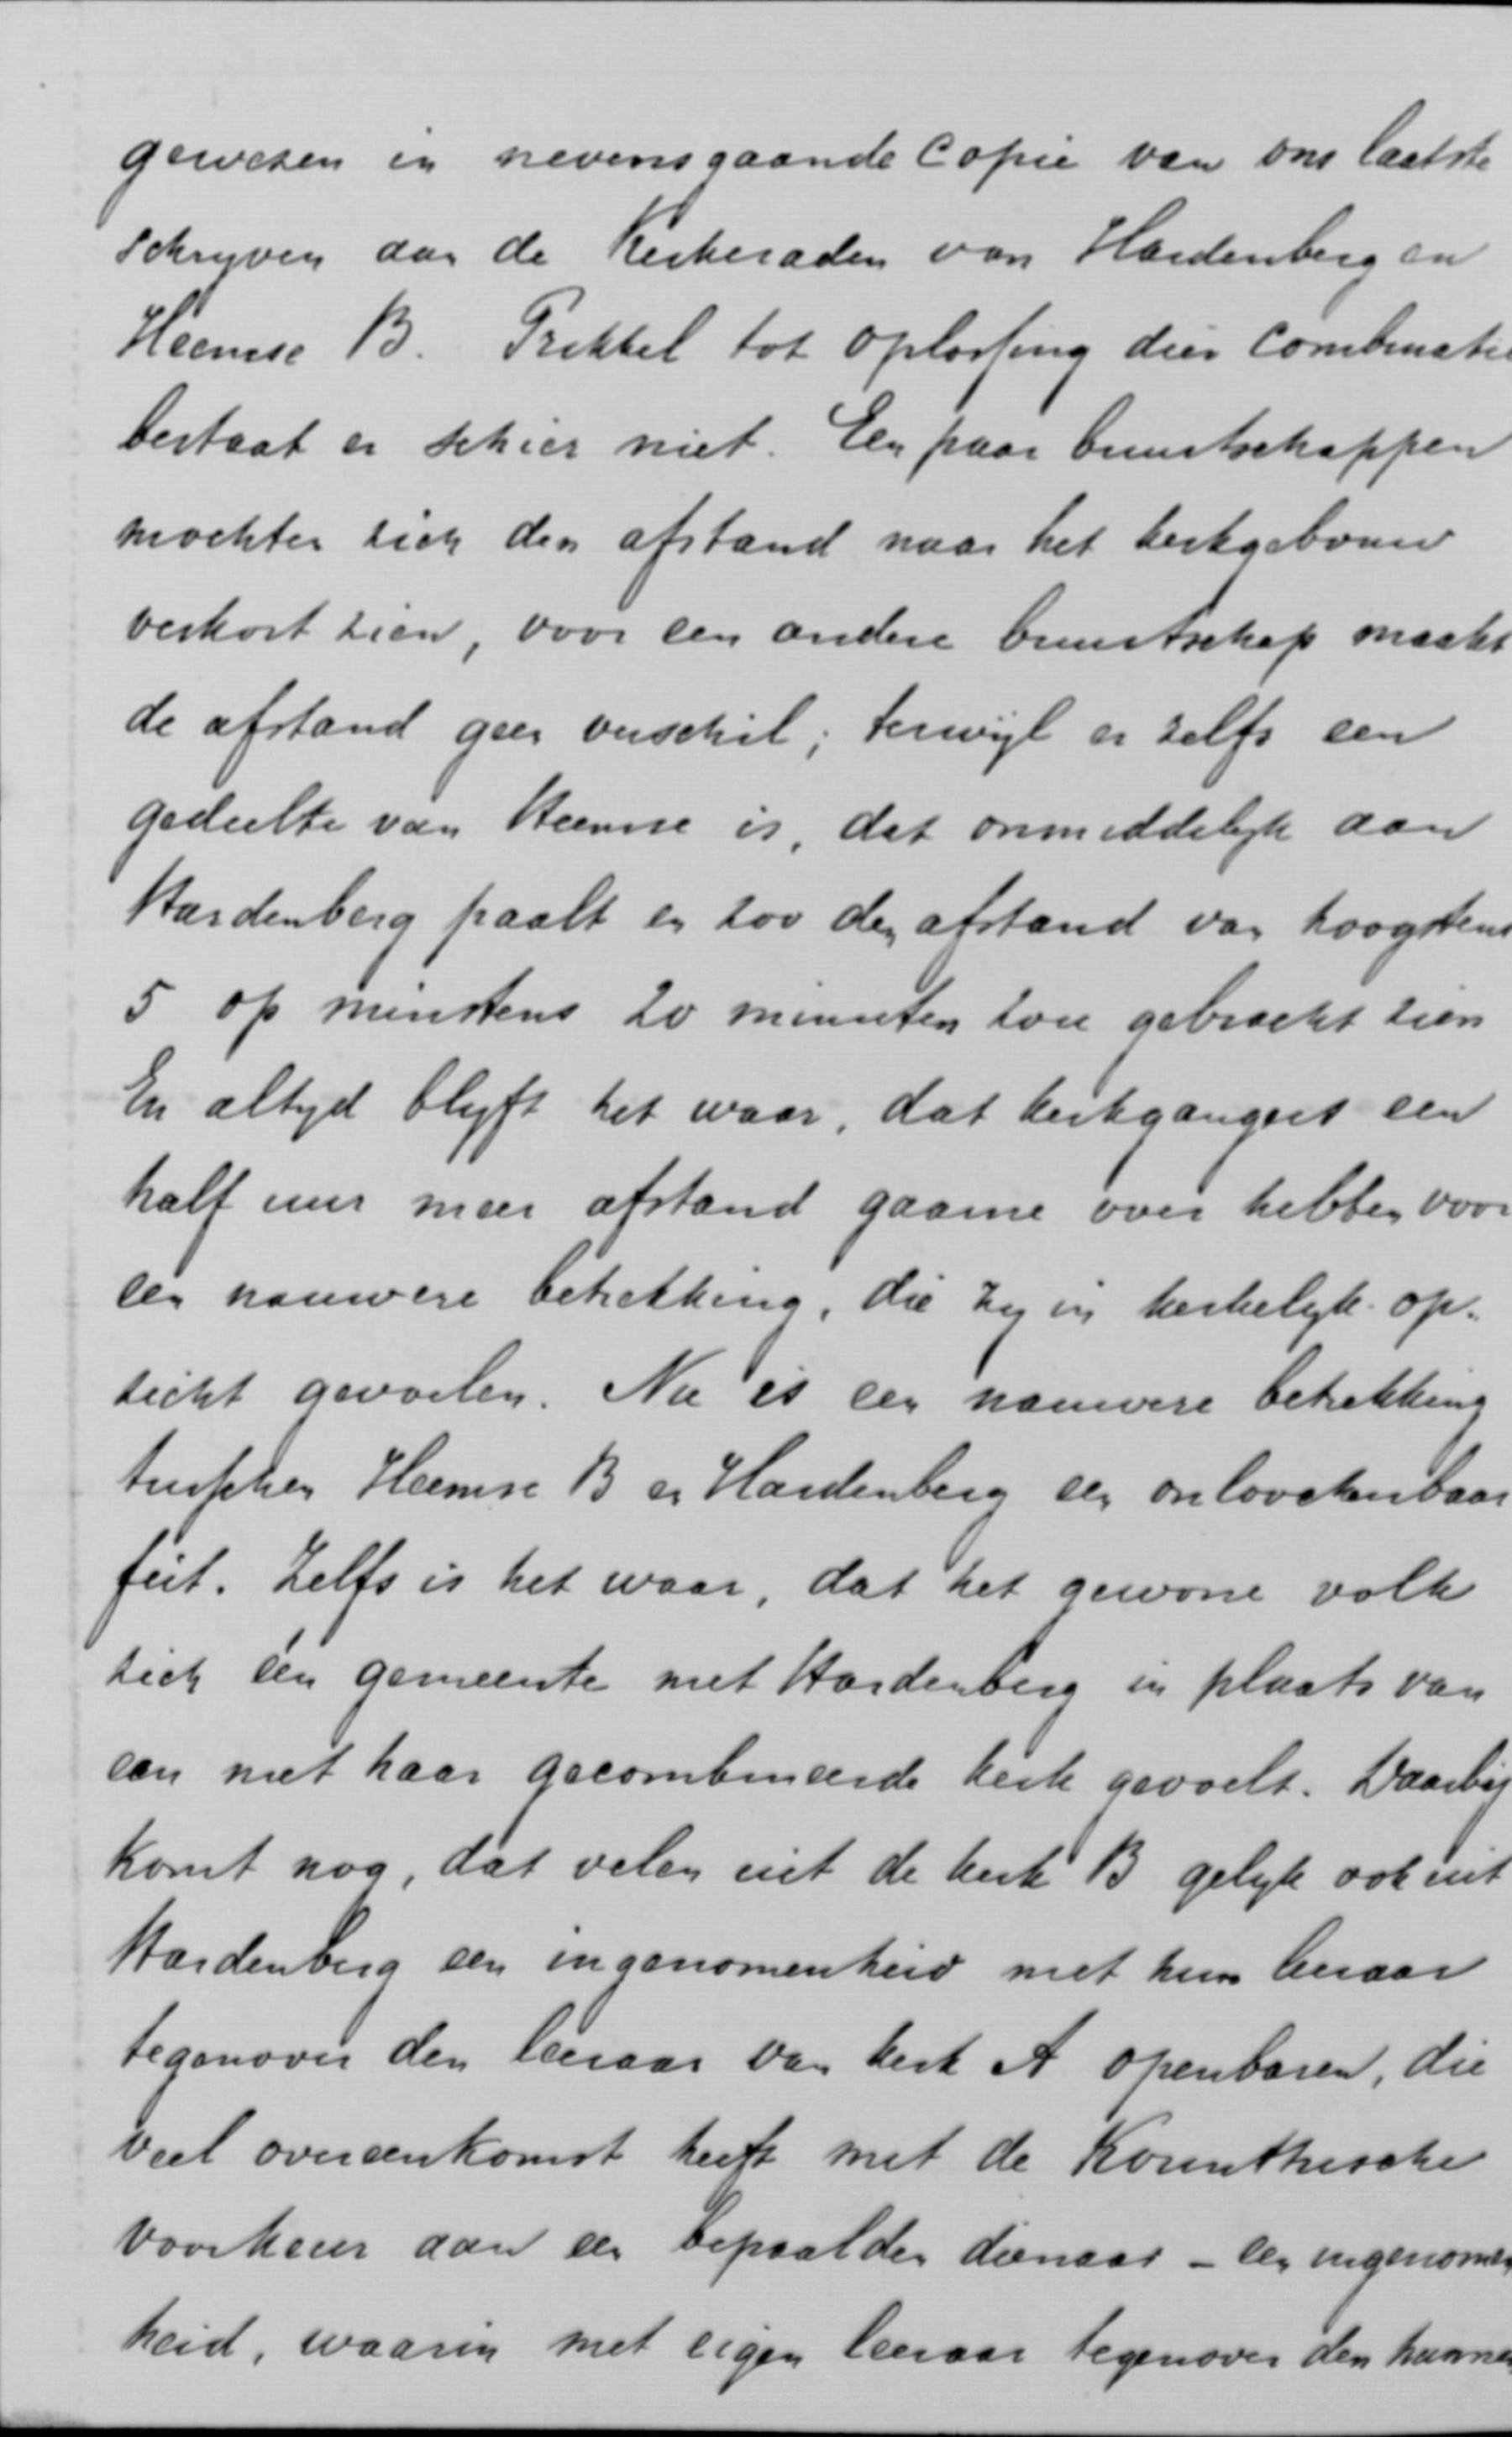 gewezen in nevensgaande Copie van ons laatste
schryven aan de Kerkeraden van Hardenberg en
Heemse B. Prikkel tot oplossing dier Combinatie
bestaat er schier niet. Een paar buurtschappen
mochten zich den afstand naar het kerkgebouw
verkort zien, voor een andere buurtschap maakt
de afstand geen verschil; terwijl er zelfs een
gedeelte van Heemse is, dat onmiddelyk aan
Hardenberg paalt en zoo den afstand van hoogstens
5 op minstens 20 minuten zou gebracht zien
En altyd blyft het waar, dat kerkgangers een
half uur meer afstand gaarne over hebben voor
een nauwere betrekking, die zy in kerkelyk op-
zicht gevoelen. Nu is een nauwere betrekking
tusschen Heemse B en Hardenberg een onloochenbaar
feit. Zelfs is het waar, dat het gewone volk
zich één gemeente met Hardenberg in plaats van
een met haar gecombineerde kerk gevoelt. Daarbij
komt nog, dat velen uit de kerk B gelyk ook uit
Hardenberg een ingenomenheid met hun leraar
tegenover den leeraar van kerk A openbaren, die
veel overeenkomst heeft met de Korinthische
voorkeur aan een bepaalden dienaar - een ingenomen
heid, waarin met eigen leeraar tegenover den hunnen